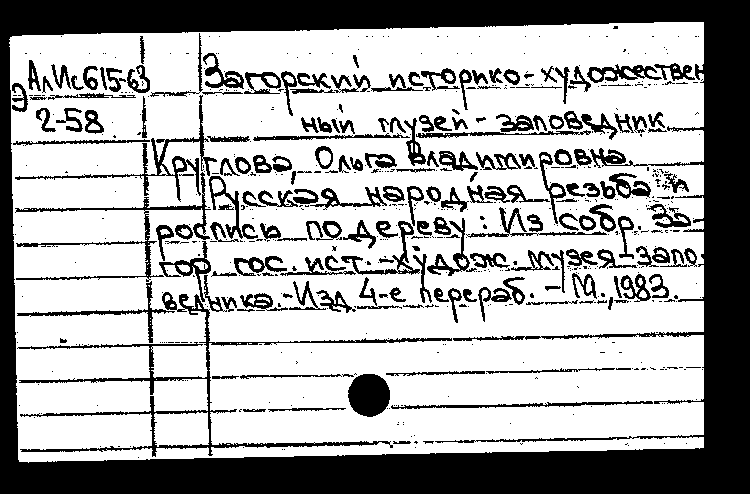 АлИс615-63
Э
2-58
Загорский историко-художествен
ный музей-заповедник
Круглова, Ольга Владимировна.
Русская народная резьба и
роспись по дереву: Из собр. За-
гор. гос. ист.-худож. музея-запо-
ведника.-Изд 4-е перераб. - М.,1983.